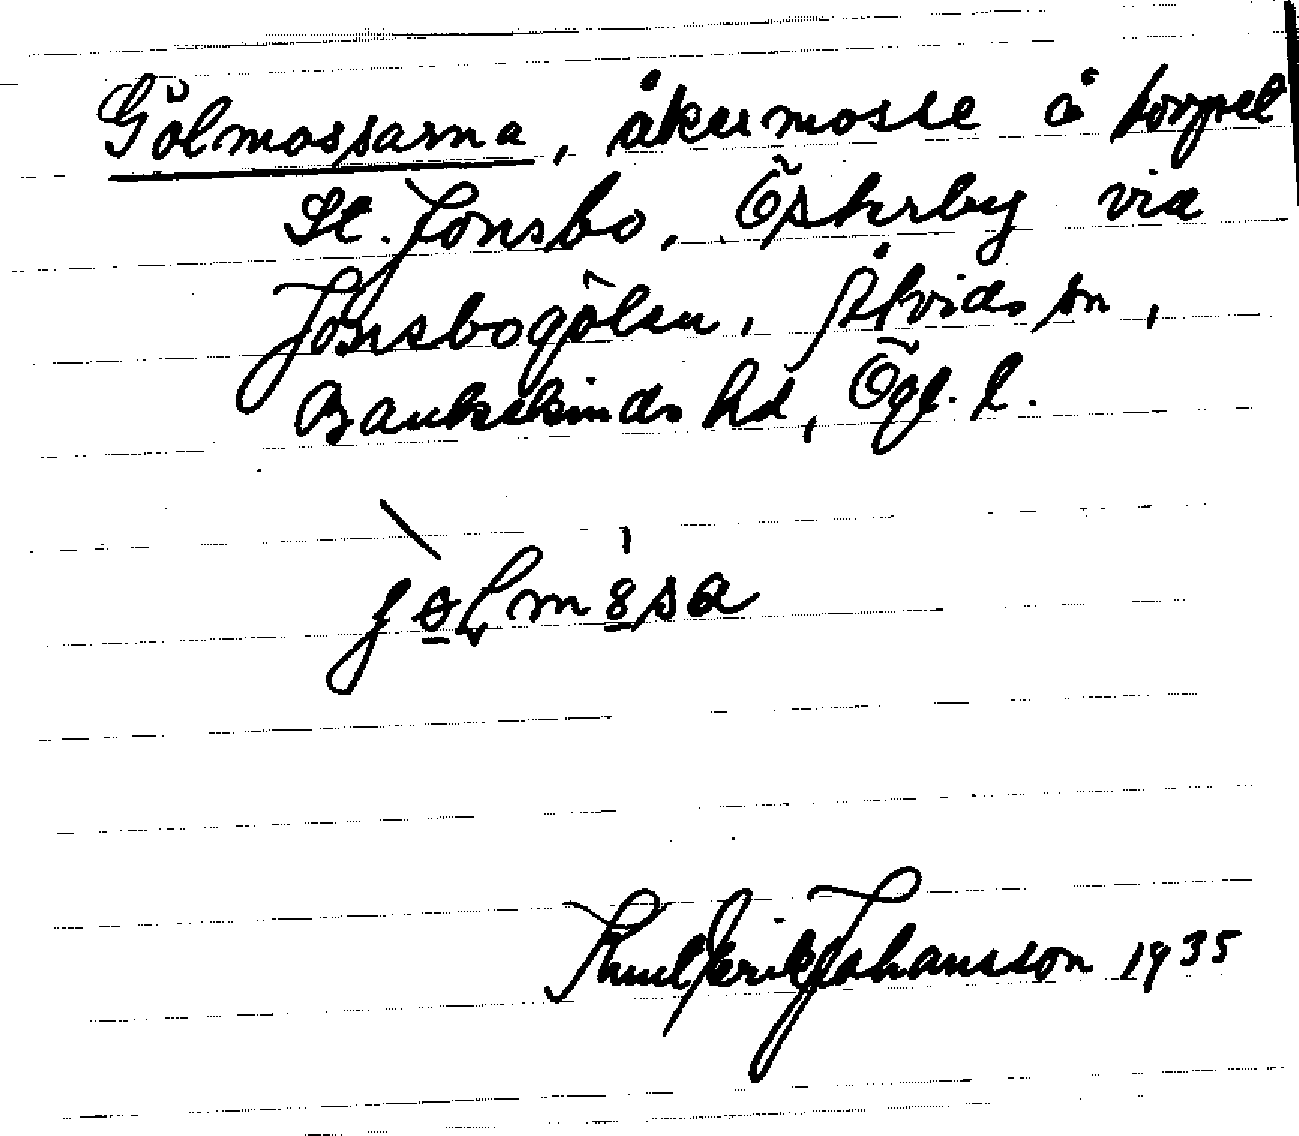 Gölmossarna, åkermosse å torpet
St. Jonsbo, Österby vid
Jonsbogölen, Åtvids sn,
Bankekinds hd, Ögl. l.
Knut Erik Johansson 1935